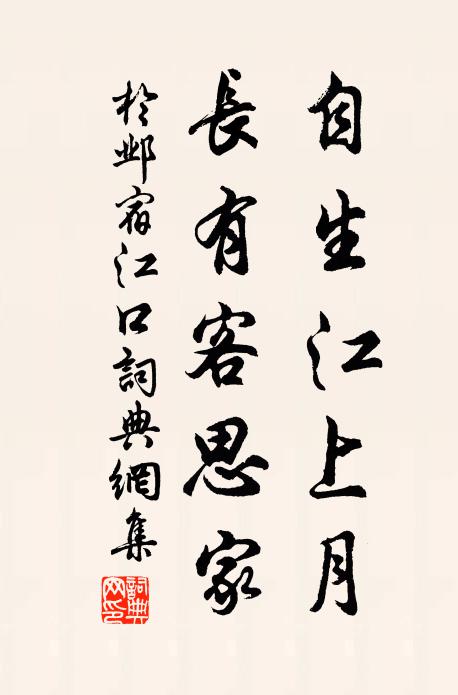 自生江上月
長有客思家
於鄴宿江口詞典網集
詞典
网印